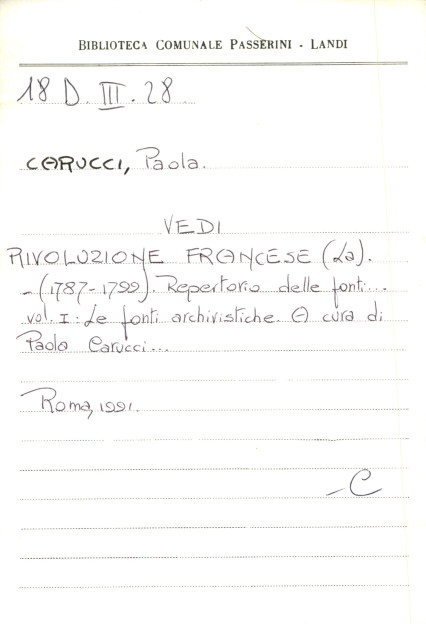 BIBLIOTECA COMUNALE PASSERINI - LANDI
18 D. III. 28.
CARUCCI, Paola.
VEDI
RIVOLUZIONE FRANCESE (La).
-(1787-1799). Repertorio delle fonti...
vol. I: Le fonti archivistiche. A cura di
Paola Carucci...
Roma, 1991.
-C